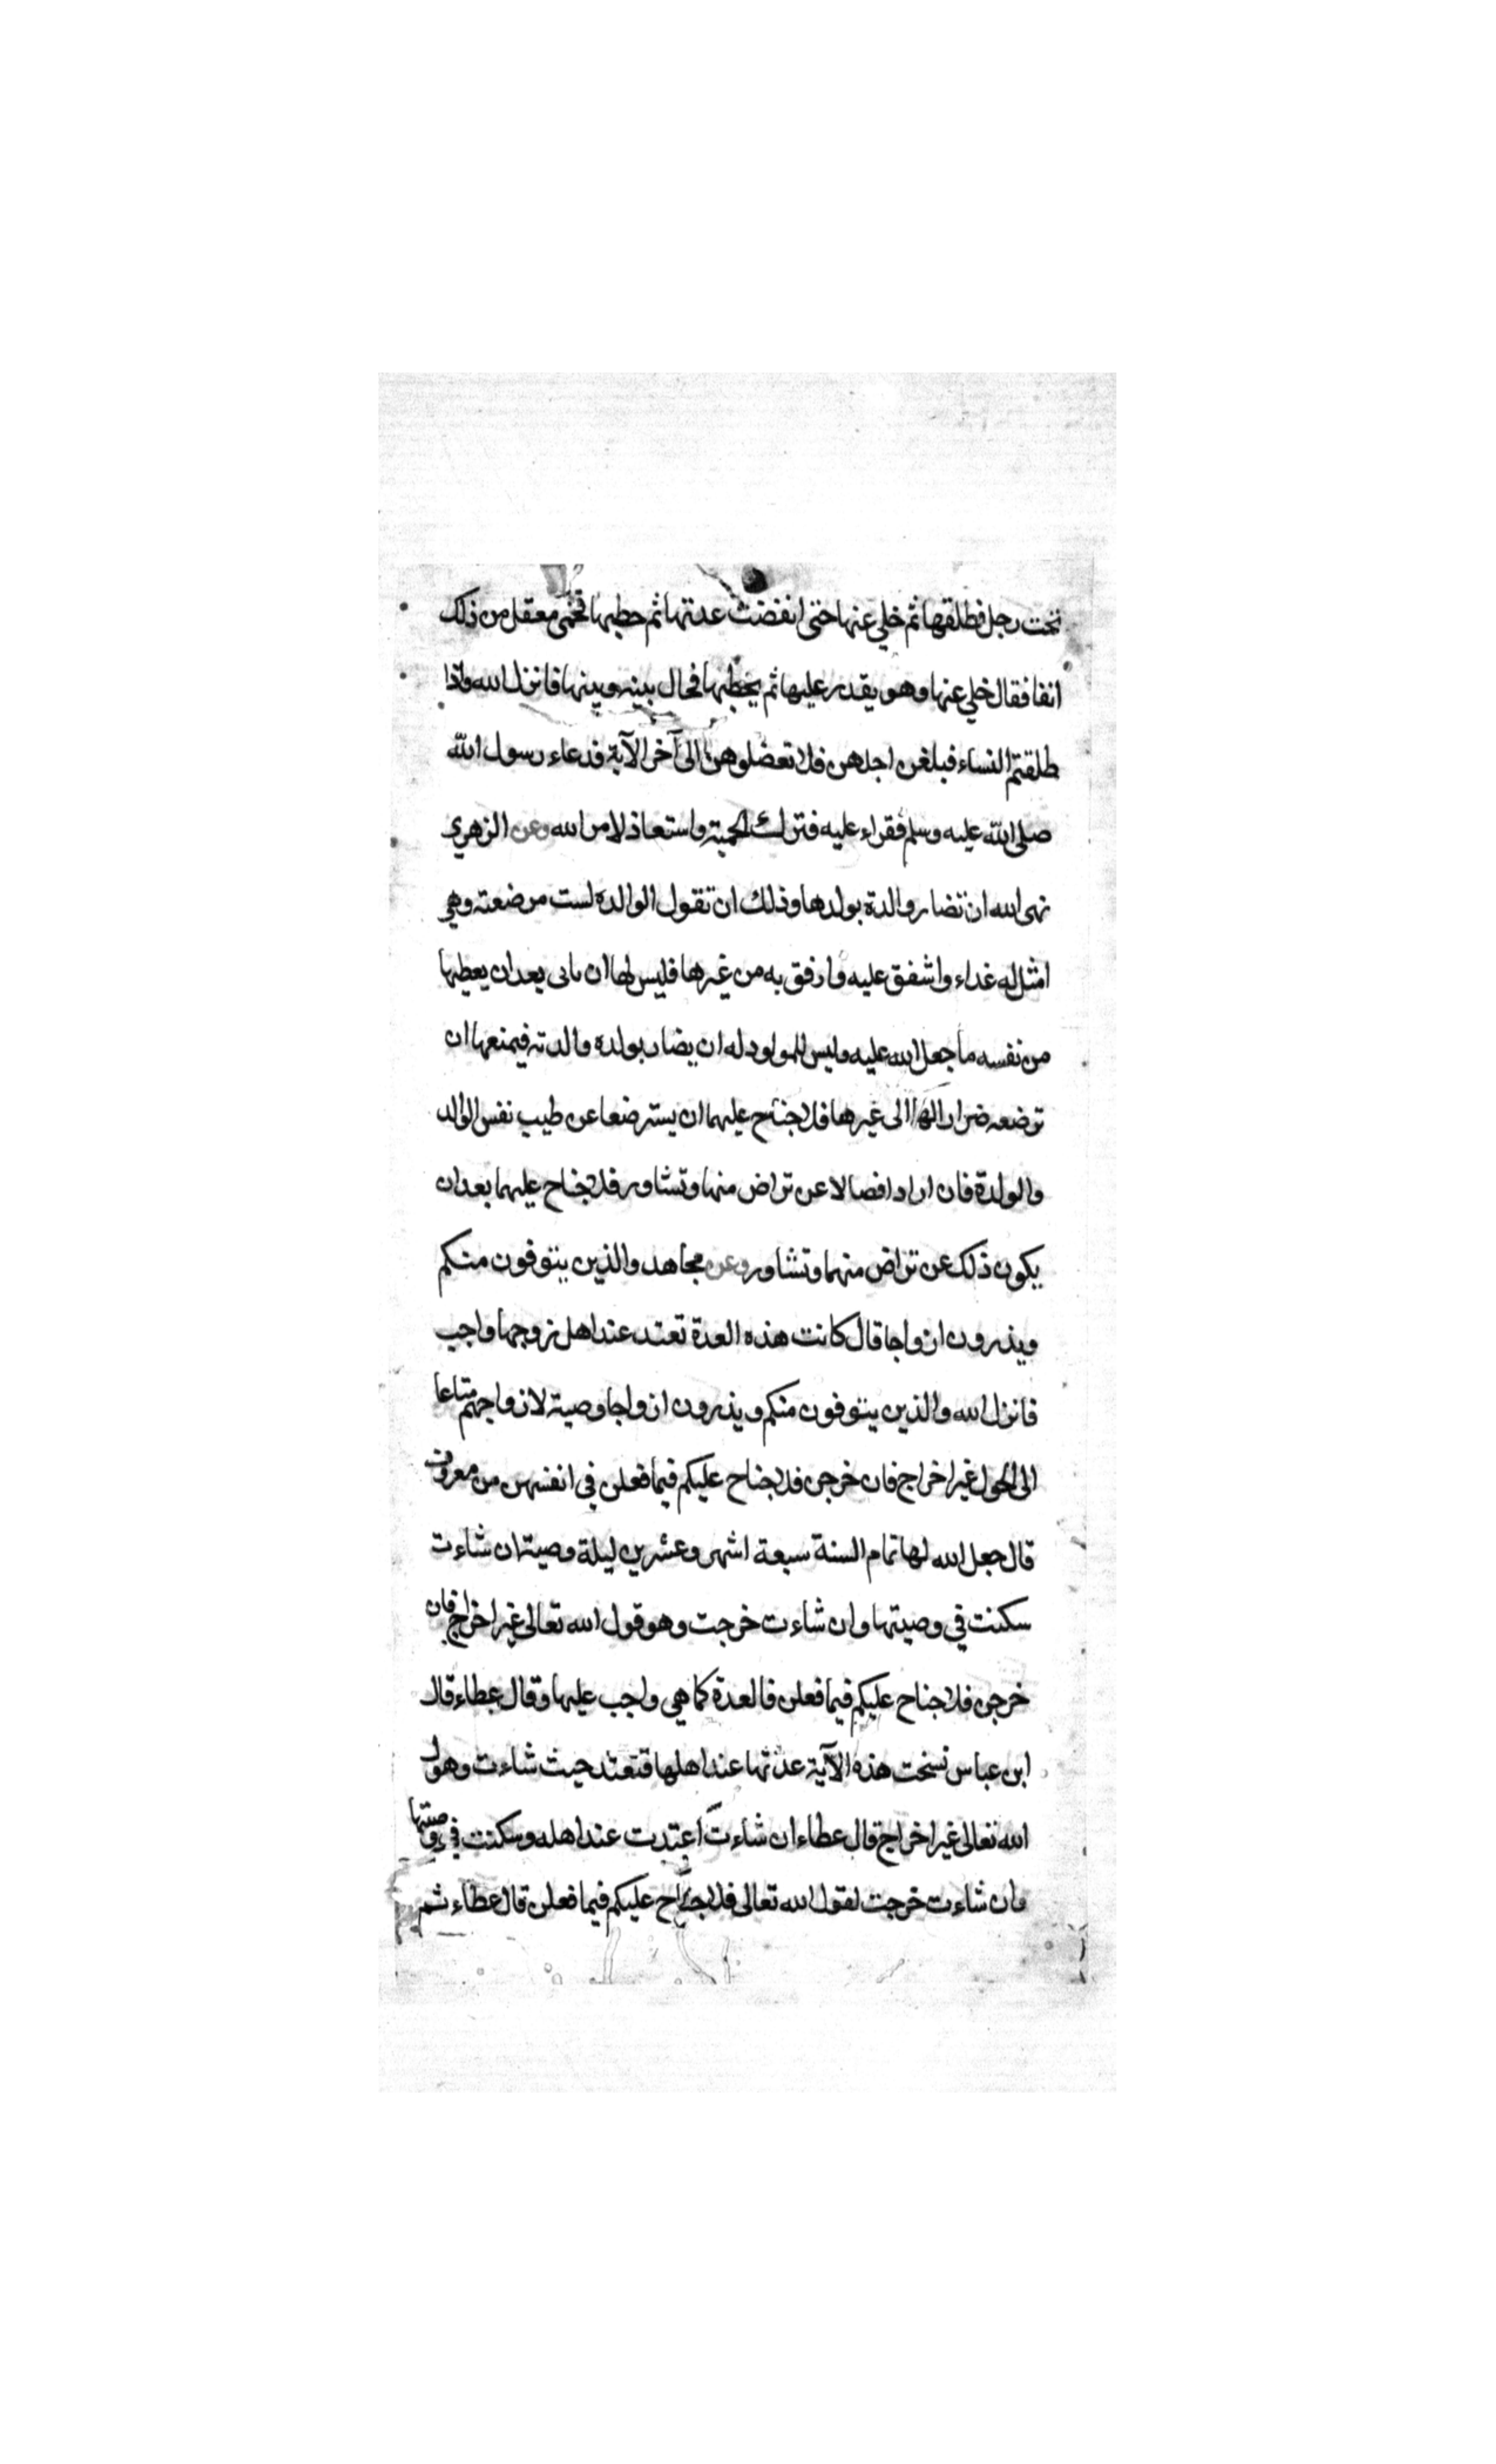 تحت رجل فطلقها ثم خلي عنها حتى انقضت عدتها ثم خطبها فحمى معقل من ذلك
انفا فقال خلي عنها وهو يقدر عليها ثم يخطبها فحال بينه وبينها فانزل الله واذا
طلقتم النساء فبلغن اجلهن فلا تعضلوهن الى آخر الآية فدعاء رسول الله
صلى الله عليه وسلم فقراء عليه فترك الحمية واستعاذ لامر الله وعن الزهري
نهى الله ان تضار والدة بولدها وذلك ان تقول الوالدة لست مرضعته وهي
امثل له غداء واشفق عليه وارفق به من غيرها فليس لها ان تابى بعد ان يعطيها
من نفسه ما جعل الله عليه وليس للمولود له ان يضار بولده والدته فيمنعها ان
ترضعه ضرارالها الى غيرها فلا جناح عليهما ان يسترضعا عن طيب نفس الوالد
والولدة فان اراد افصالا عن تراض منها وتشاور فلا جناح عليهما بعد ان
يكون ذلك عن تراض منهما وتشاور وعن مجاهد والذين يتوفون منكم
ويذرون ازواجا قال كانت هذه العدة تعتد عند اهل زوجها واجب
فانزل الله والذين يتوفون منكم ويذرون ازواجا وصية لازواجهم متاعا
الى الحول غير اخراج فان خرجن فلا جناح عليكم فيما فعلن في انفسهن من معروف
قال جعل الله لها تمام السنة سبعة اشهر وعشرين ليلة وصية ان شاءت
سكنت في وصيتها وان شاءت خرجت وهو قول الله تعالى غير اخراج فان
خرجن فلا جناح عليكم فيما فعلن فالعدة كما هي واجب عليها وقال عطاء قال
ابن عباس نسخت هذه الآية عدتها عند اهلها فتعتد حيث شاءت وهو
الله تعالى غير اخراج قال عطاء ان شاءت اعتدت عند اهله وسكنت في وصيتها
وان شاءت خرجت لقول الله تعالى فلا جناح عليكم فيما فعلن قال عطاء ثم